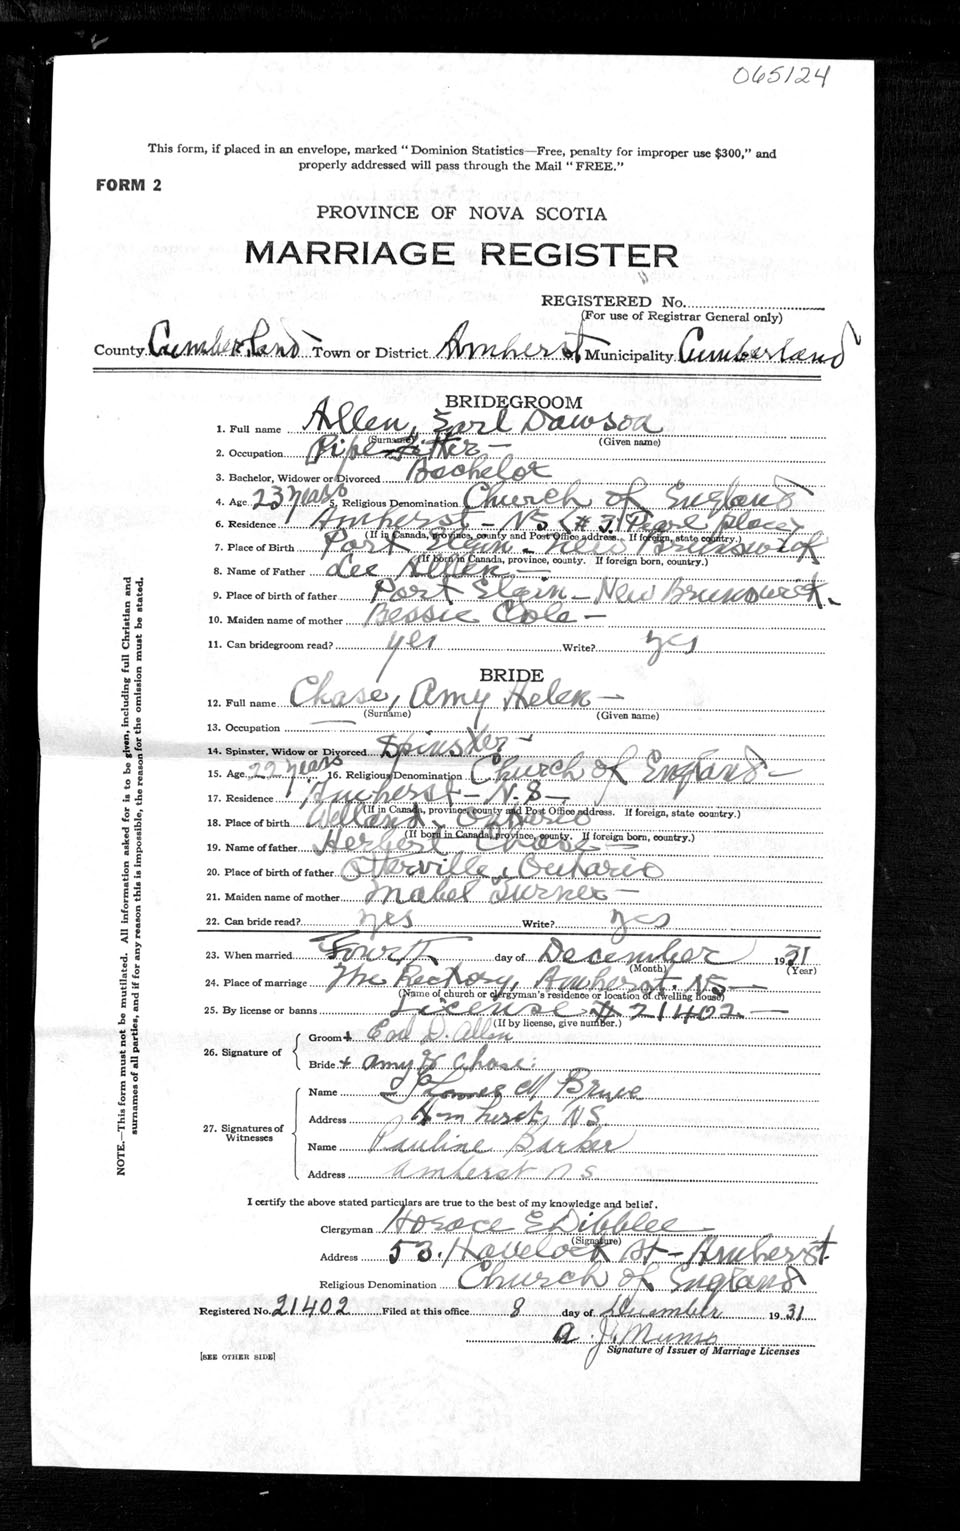 065124
This form, if placed in an envelope, marked "Dominion Statistics—Free, penalty for improper use $300," and
properly addressed will pass through the Mail "FREE."
FORM 2
PROVINCE OF NOVA SCOTIA
MARRIAGE REGISTER
REGISTERED No.
(For use of Registrar General only)
County Cumberland Town or District Amherst Municipality Cumberland
BRIDEGROOM
1. Full name Allen, Earl Dawson
(Surname) (Given name)
2. Occupation Pipe fitter —
3. Bachelor, Widower or Divorced Bachelor
4. Age 23 years 5. Religious Denomination Church of England
6. Residence Amherst — NS (# 31 Pearl place)
(If in Canada, province, county and Post Office address. If foreign, state country.)
7. Place of Birth Port Elgin — New Brunswick
(If born in Canada, province, county. If foreign born, country.)
8. Name of Father Lee Allen —
9. Place of birth of father Port Elgin — New Brunswick.
10. Maiden name of mother Bessie Cole —
11. Can bridegroom read? yes Write? yes
BRIDE
12. Full name Chase, Amy Helen —
(Surname) (Given name)
13. Occupation —
14. Spinster, Widow or Divorced Spinster —
15. Age 22 years 16. Religious Denomination Church of England —
17. Residence Amherst — N.S —
(If in Canada, province, county and Post Office address. If foreign, state country.)
18. Place of birth Welland, Ontario
(If born in Canada, province, county. If foreign born, country.)
19. Name of father Herbert Chase —
20. Place of birth of father Otterville, Ontario
21. Maiden name of mother Mabel Turner —
22. Can bride read? yes Write? yes
23. When married Fourth day of December 1931
(Month) (Year)
24. Place of marriage The Rectory, Amherst. NS —
(Name of church or clergyman's residence or location of dwelling house)
25. By license or banns License # 21402 —
(If by license, give number.)
26. Signature of
Groom + Earl D. Allen
Bride + Amy H Chase.
27. Signatures of Witnesses
Name M Bruce
Address Amherst, NS.
Name Pauline Barker
Address Amherst N.S.
I certify the above stated particulars are true to the best of my knowledge and belief.
Clergyman Horace E Dibblee
(Signature)
Address 53. Havelock St — Amherst
Religious Denomination Church of England
Registered No. 21402 Filed at this office 8 day of December 1931
A. J. Munro
Signature of Issuer of Marriage Licenses
[SEE OTHER SIDE]
NOTE.—This form must not be mutilated. All information asked for is to be given, including full Christian and
surnames of all parties, and if for any reason this is impossible, the reason for the omission must be stated.